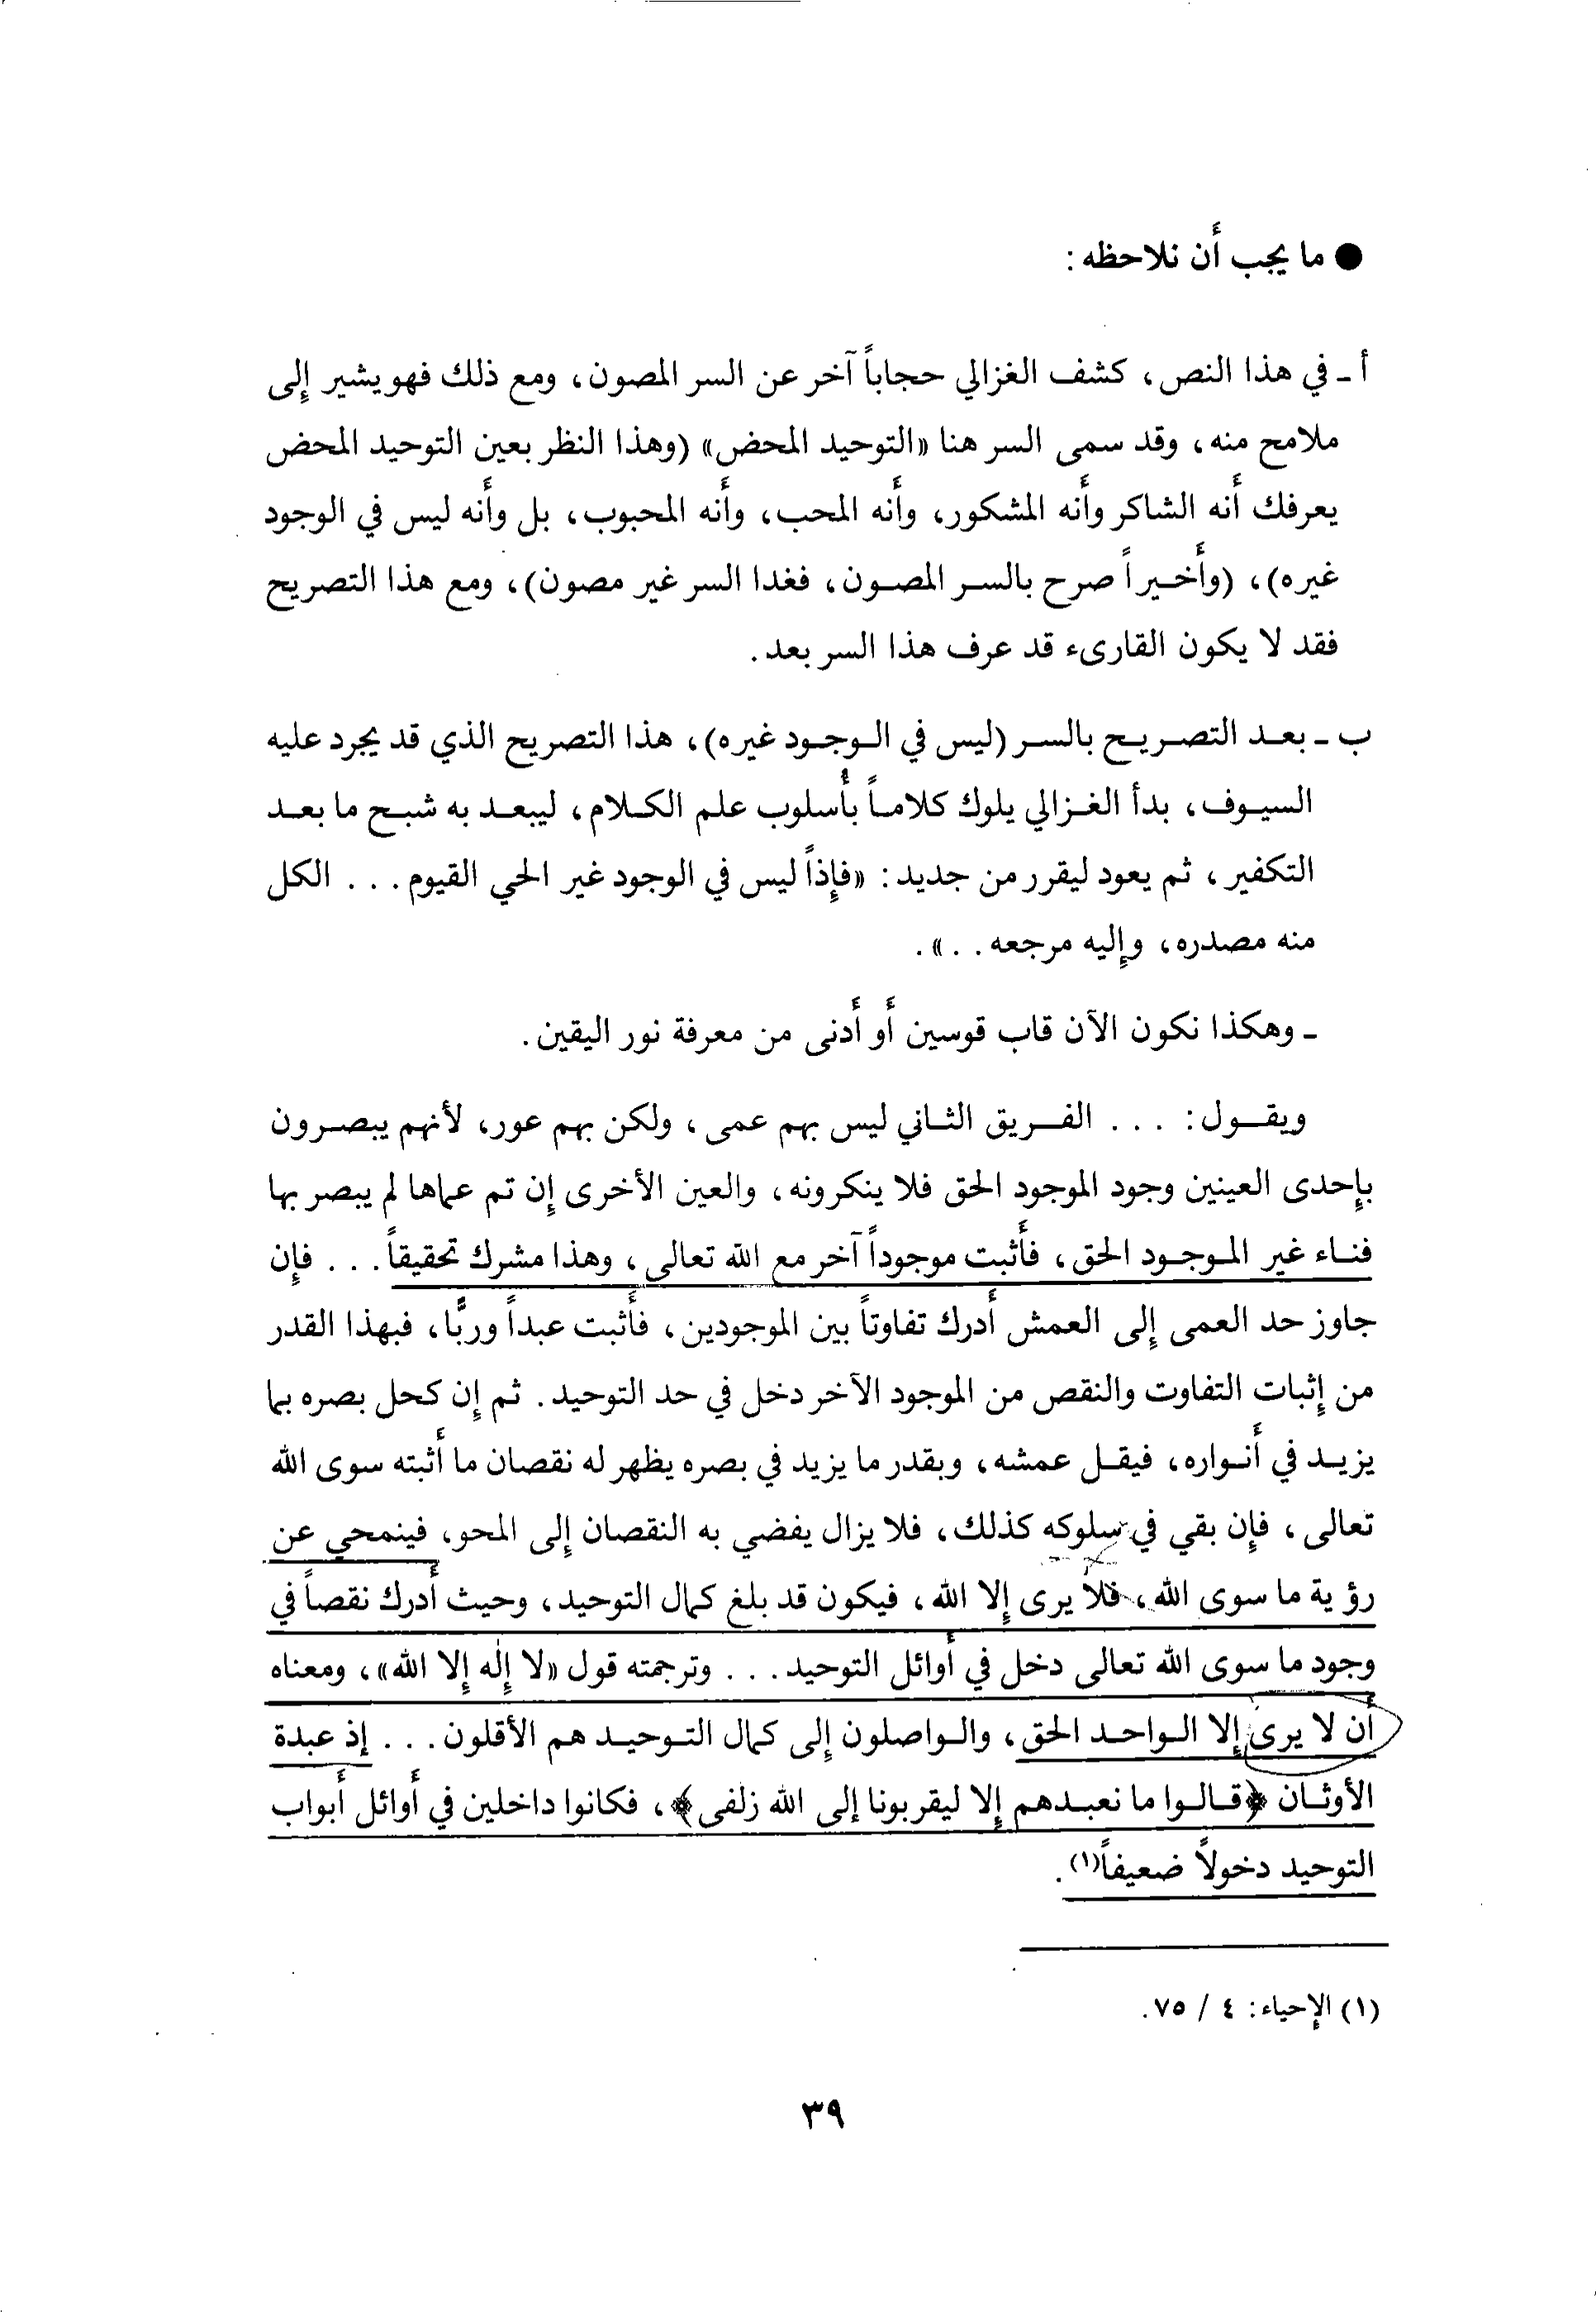 ● ما يجب أن نلاحظه :
أ ـ في هذا النص، كشف الغزالي حجاباً آخر عن السر المصون، ومع ذلك فهو يشير إلى
ملامح منه، وقد سمى السر هنا «التوحيد المحض» (وهذا النظر بعين التوحيد المحض
يعرفك أنه الشاكر وأنه المشكور، وأنه المحب، وأنه المحبوب، بل وأنه ليس في الوجود
غيره)، (وأخيراً صرح بالسر المصون، فغدا السر غير مصون)، ومع هذا التصريح
فقد لا يكون القارىء قد عرف هذا السر بعد.
ب ـ بعد التصريح بالسر (ليس في الوجود غيره)، هذا التصريح الذي قد يجرد عليه
السيوف، بدأ الغزالي يلوك كلاماً بأسلوب علم الكلام، ليبعد به شبح ما بعد
التكفير، ثم يعود ليقرر من جديد: «فإذاً ليس في الوجود غير الحي القيوم... الكل
منه مصدره، وإليه مرجعه..».
ـ وهكذا نكون الآن قاب قوسين أو أدنى من معرفة نور اليقين.
ويقول: ... الفريق الثاني ليس بهم عمى، ولكن بهم عور، لأنهم يبصرون
بإحدى العينين وجود الموجود الحق فلا ينكرونه، والعين الأخرى إن تم عماها لم يبصر بها
فناء غير الموجود الحق، فأثبت موجوداً آخر مع الله تعالى، وهذا مشرك تحقيقاً... فإن
جاوز حد العمى إلى العمش أدرك تفاوتاً بين الموجودين، فأثبت عبداً وربًّا، فبهذا القدر
من إثبات التفاوت والنقص من الموجود الآخر دخل في حد التوحيد. ثم إن كحل بصره بما
يزيد في أنواره، فيقل عمشه، وبقدر ما يزيد في بصره يظهر له نقصان ما أثبته سوى الله
تعالى، فإن بقي في سلوكه كذلك، فلا يزال يفضي به النقصان إلى المحو، فينمحي عن
رؤية ما سوى الله، فلا يرى إلا الله، فيكون قد بلغ كمال التوحيد، وحيث أدرك نقصاً في
وجود ما سوى الله تعالى دخل في أوائل التوحيد... وترجمته قول «لا إله إلا الله»، ومعناه
أن لا يرى إلا الواحد الحق، والواصلون إلى كمال التوحيد هم الأقلون... إذ عبدة
الأوثان ﴿قالوا ما نعبدهم إلا ليقربونا إلى الله زلفى﴾، فكانوا داخلين في أوائل أبواب
التوحيد دخولاً ضعيفاً(١).
(١) الإحياء: ٤ / ٧٥.
٣٩